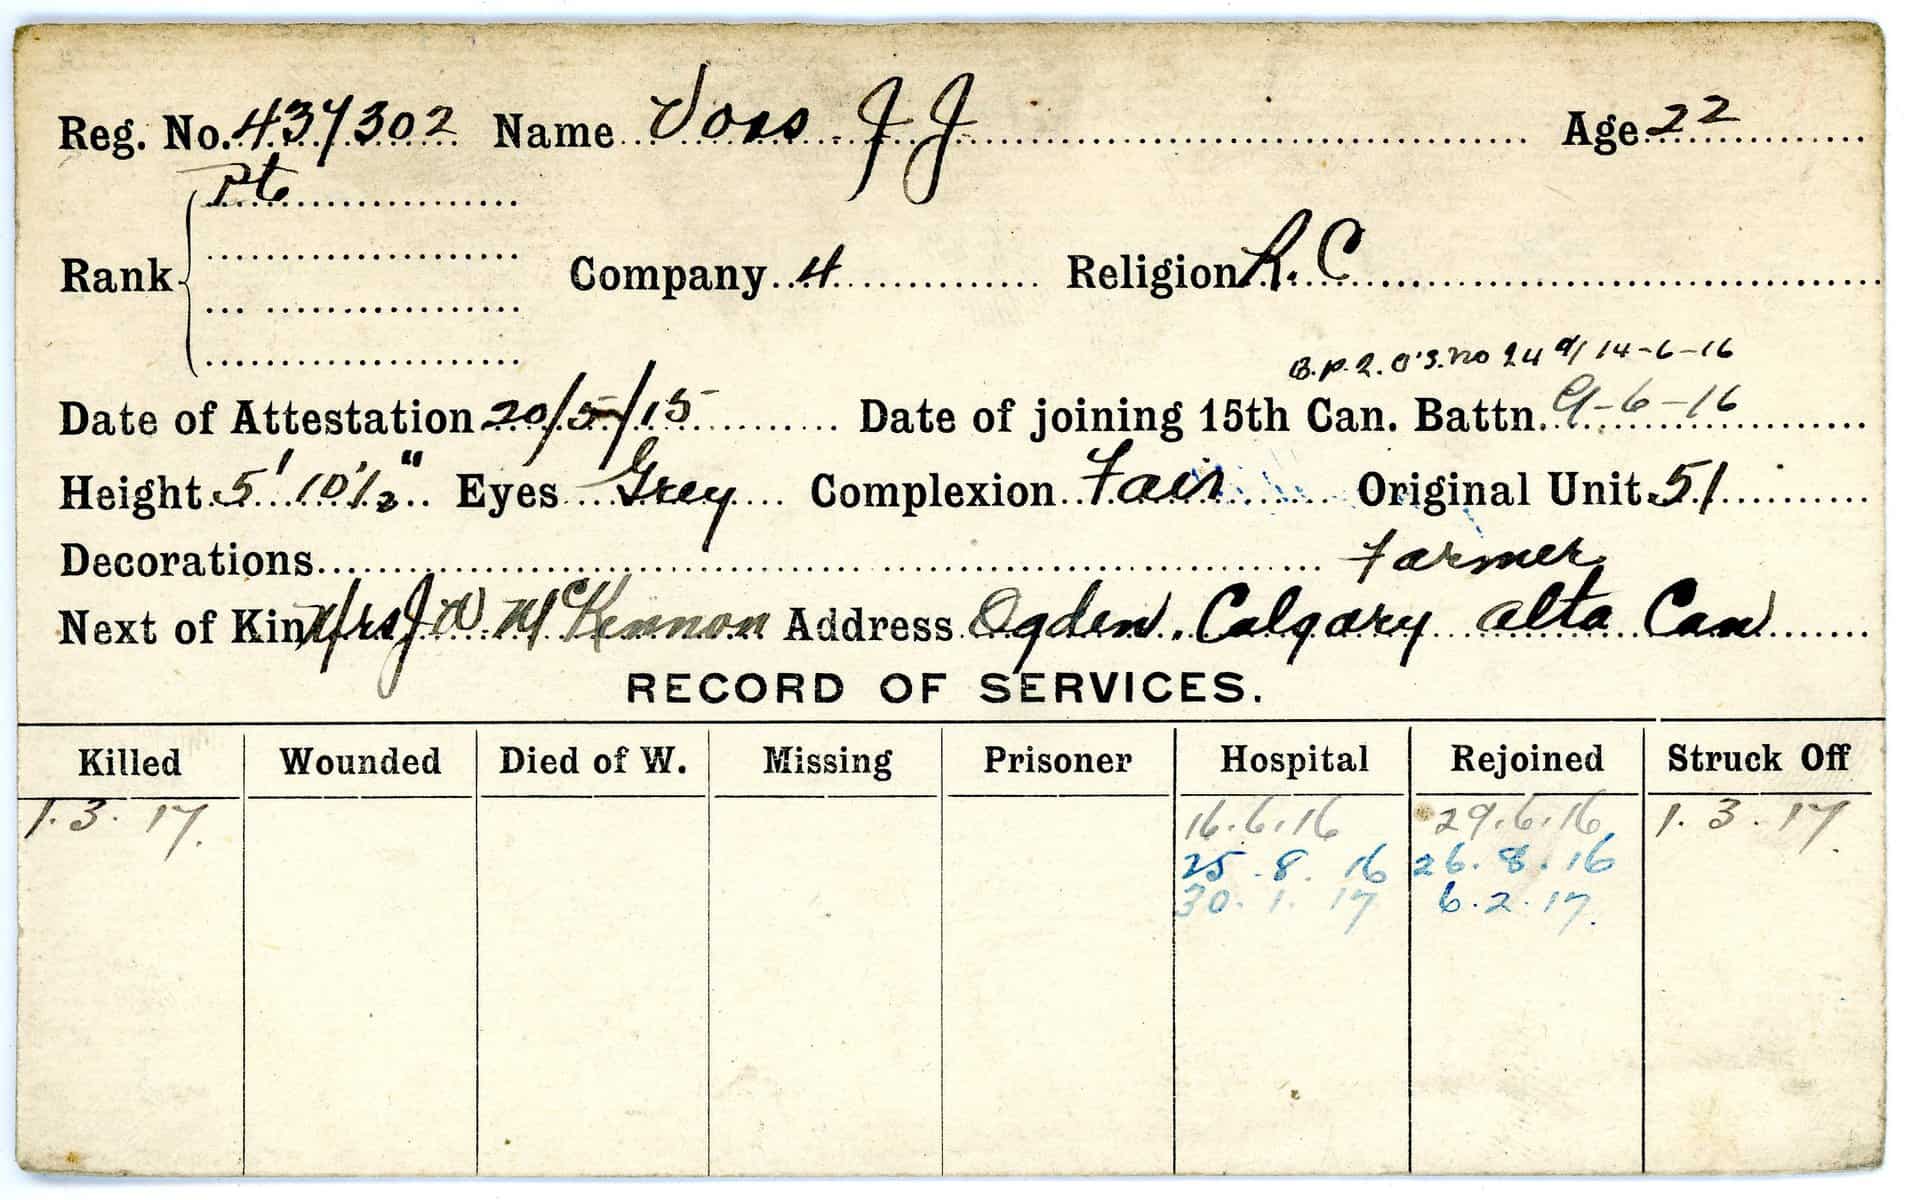 Reg. No. 437302 Name Voss J J Age 22
Pte
Rank Company 4 Religion R. C
B.P.2. O'S. no 24 d/ 14-6-16
Date of Attestation 20/5/15 Date of joining 15th Can. Battn. 9-6-16
Height 5' 10½" Eyes Grey Complexion Fair Original Unit 51
Decorations Farmer
Next of Kin Mrs J W McKennon Address Ogden. Calgary Alta Can
RECORD OF SERVICES.
Killed Wounded Died of W. Missing Prisoner Hospital Rejoined Struck Off
1. 3. 17. 16.6.16 29.6.16 1. 3. 17.
25. 8. 16 26. 8. 16
30. 1. 17 6. 2. 17.